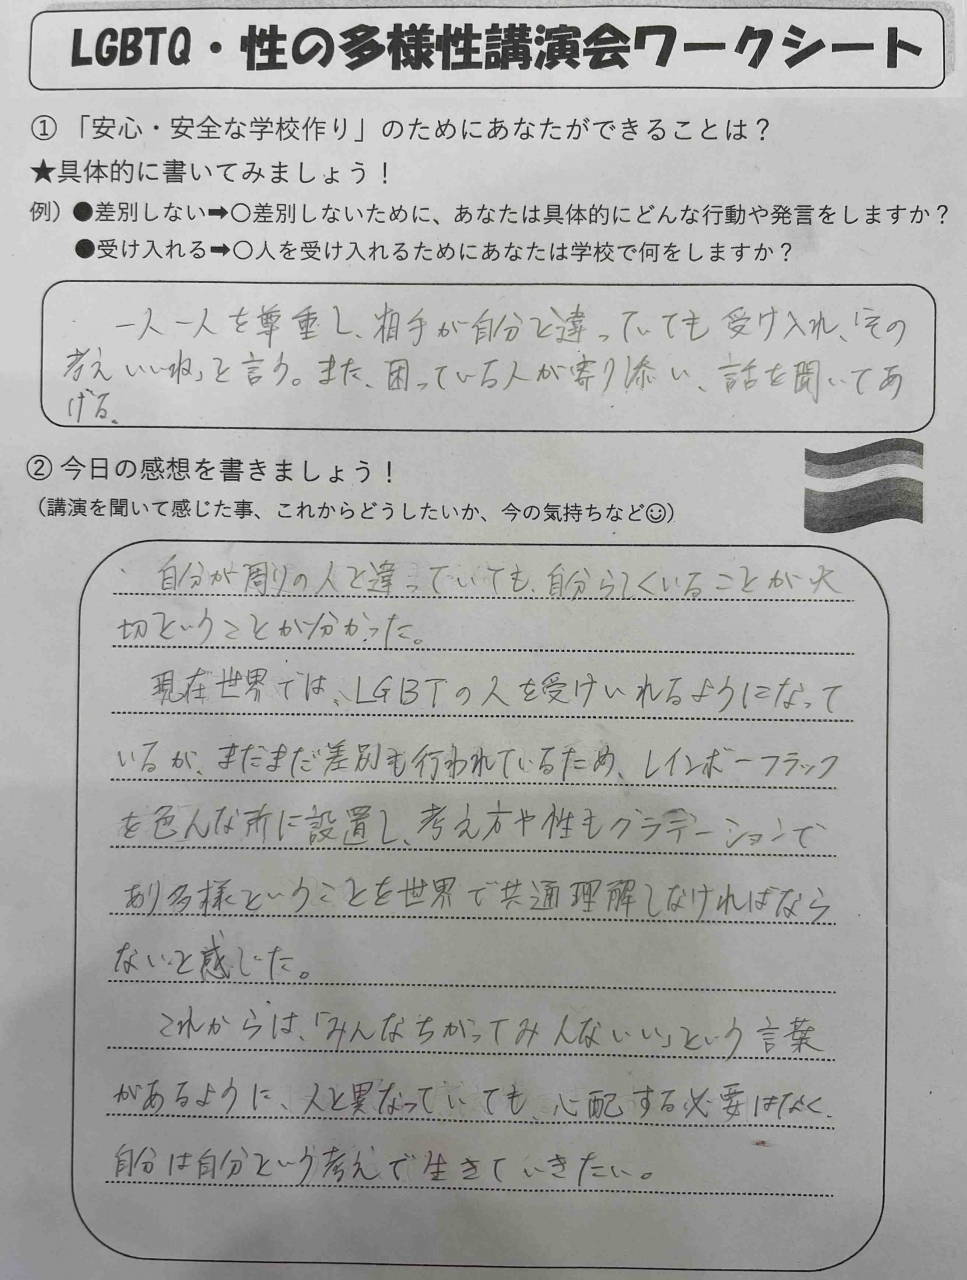 LGBTQ・性の多様性講演会ワークシート
①「安心・安全な学校作り」のためにあなたができることは？
★具体的に書いてみましょう！
例）●差別しない➡〇差別しないために、あなたは具体的にどんな行動や発言をしますか？
●受け入れる➡〇人を受け入れるためにあなたは学校で何をしますか？
一人一人を尊重し、相手が自分と違っていても受け入れ、「その
考えいいね」と言う。また、困っている人が寄り添い、話を聞いてあ
げる。
②今日の感想を書きましょう！
（講演を聞いて感じた事、これからどうしたいか、今の気持ちなど☺）
自分が周りの人と違っていても、自分らしくいることが大
切ということが分かった。
現在世界では、LGBTの人を受けいれるようになって
いるが、まだまだ差別も行われているため、レインボーフラック
を色んな所に設置し、考え方や性もグラデーションで
あり多様ということを世界で共通理解しなければなら
ないと感じた。
これからは、「みんなちがってみんないい」という言葉
があるように、人と異なっていても、心配する必要はなく、
自分は自分という考えで生きていきたい。